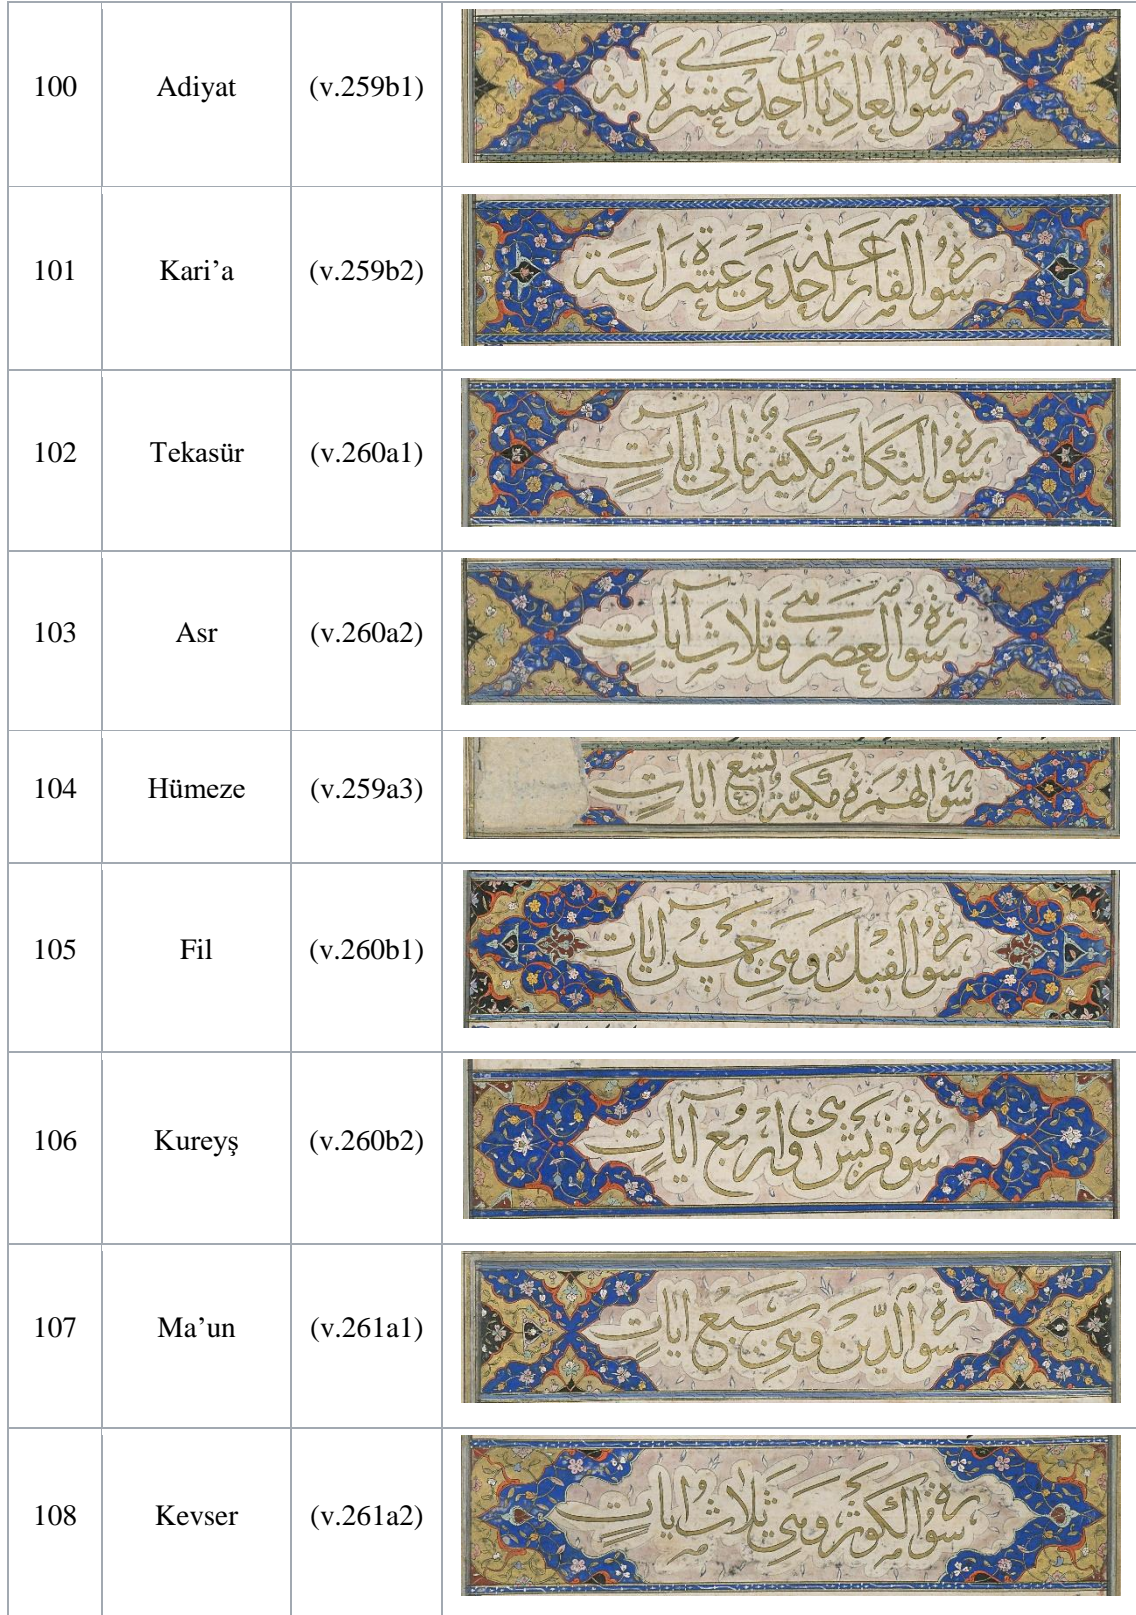 100 Adiyat (v.259b1) سورة العاديات احدى عشرة اية
101 Kari’a (v.259b2) سورة القارعة احدى عشرة اية
102 Tekasür (v.260a1) سورة التكاثر مكية ثماني ايات
103 Asr (v.260a2) سورة العصر وهي ثلاث آيات
104 Hümeze (v.259a3) سورة الهمزة مكية تسع ايات
105 Fil (v.260b1) سورة الفيل وهي خمس ايات
106 Kureyş (v.260b2) سورة قريش وهي اربع آيات
107 Ma’un (v.261a1) سورة الدين وهي سبع ايات
108 Kevser (v.261a2) سورة الكوثر وهي ثلاث ايات